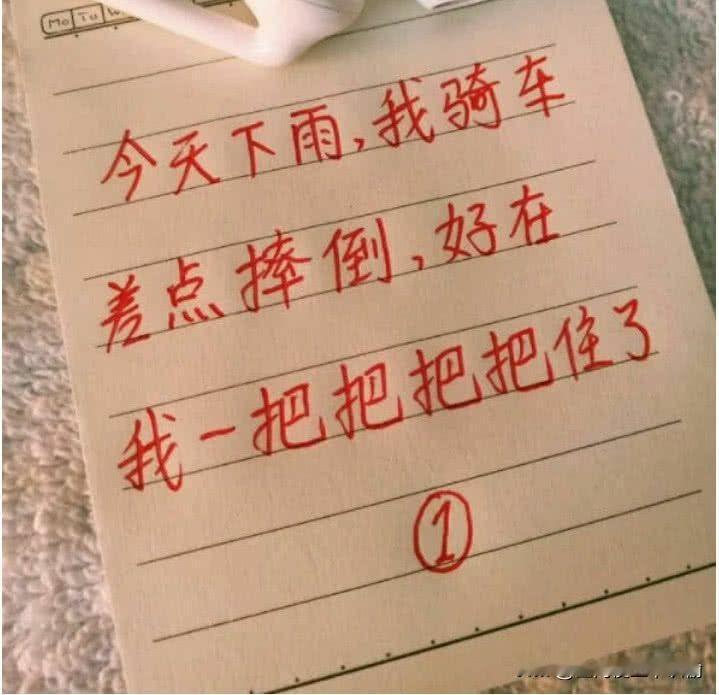 Mo Tu
今天下雨,我骑车
差点摔倒,好在
我一把把把把住了
①